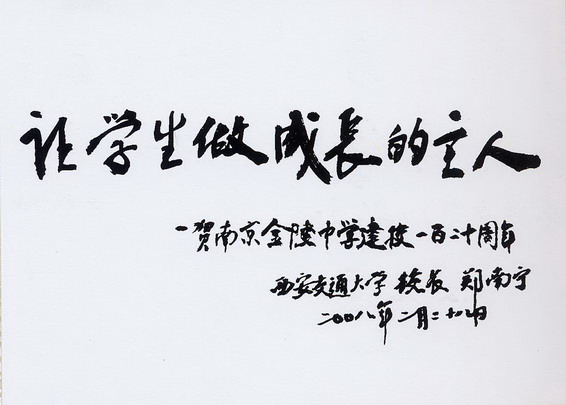 让学生做成長的主人
一贺南京金陵中学建校一百二十周年
西安交通大学 校长 郑南宁
二〇〇八年二月二十九日